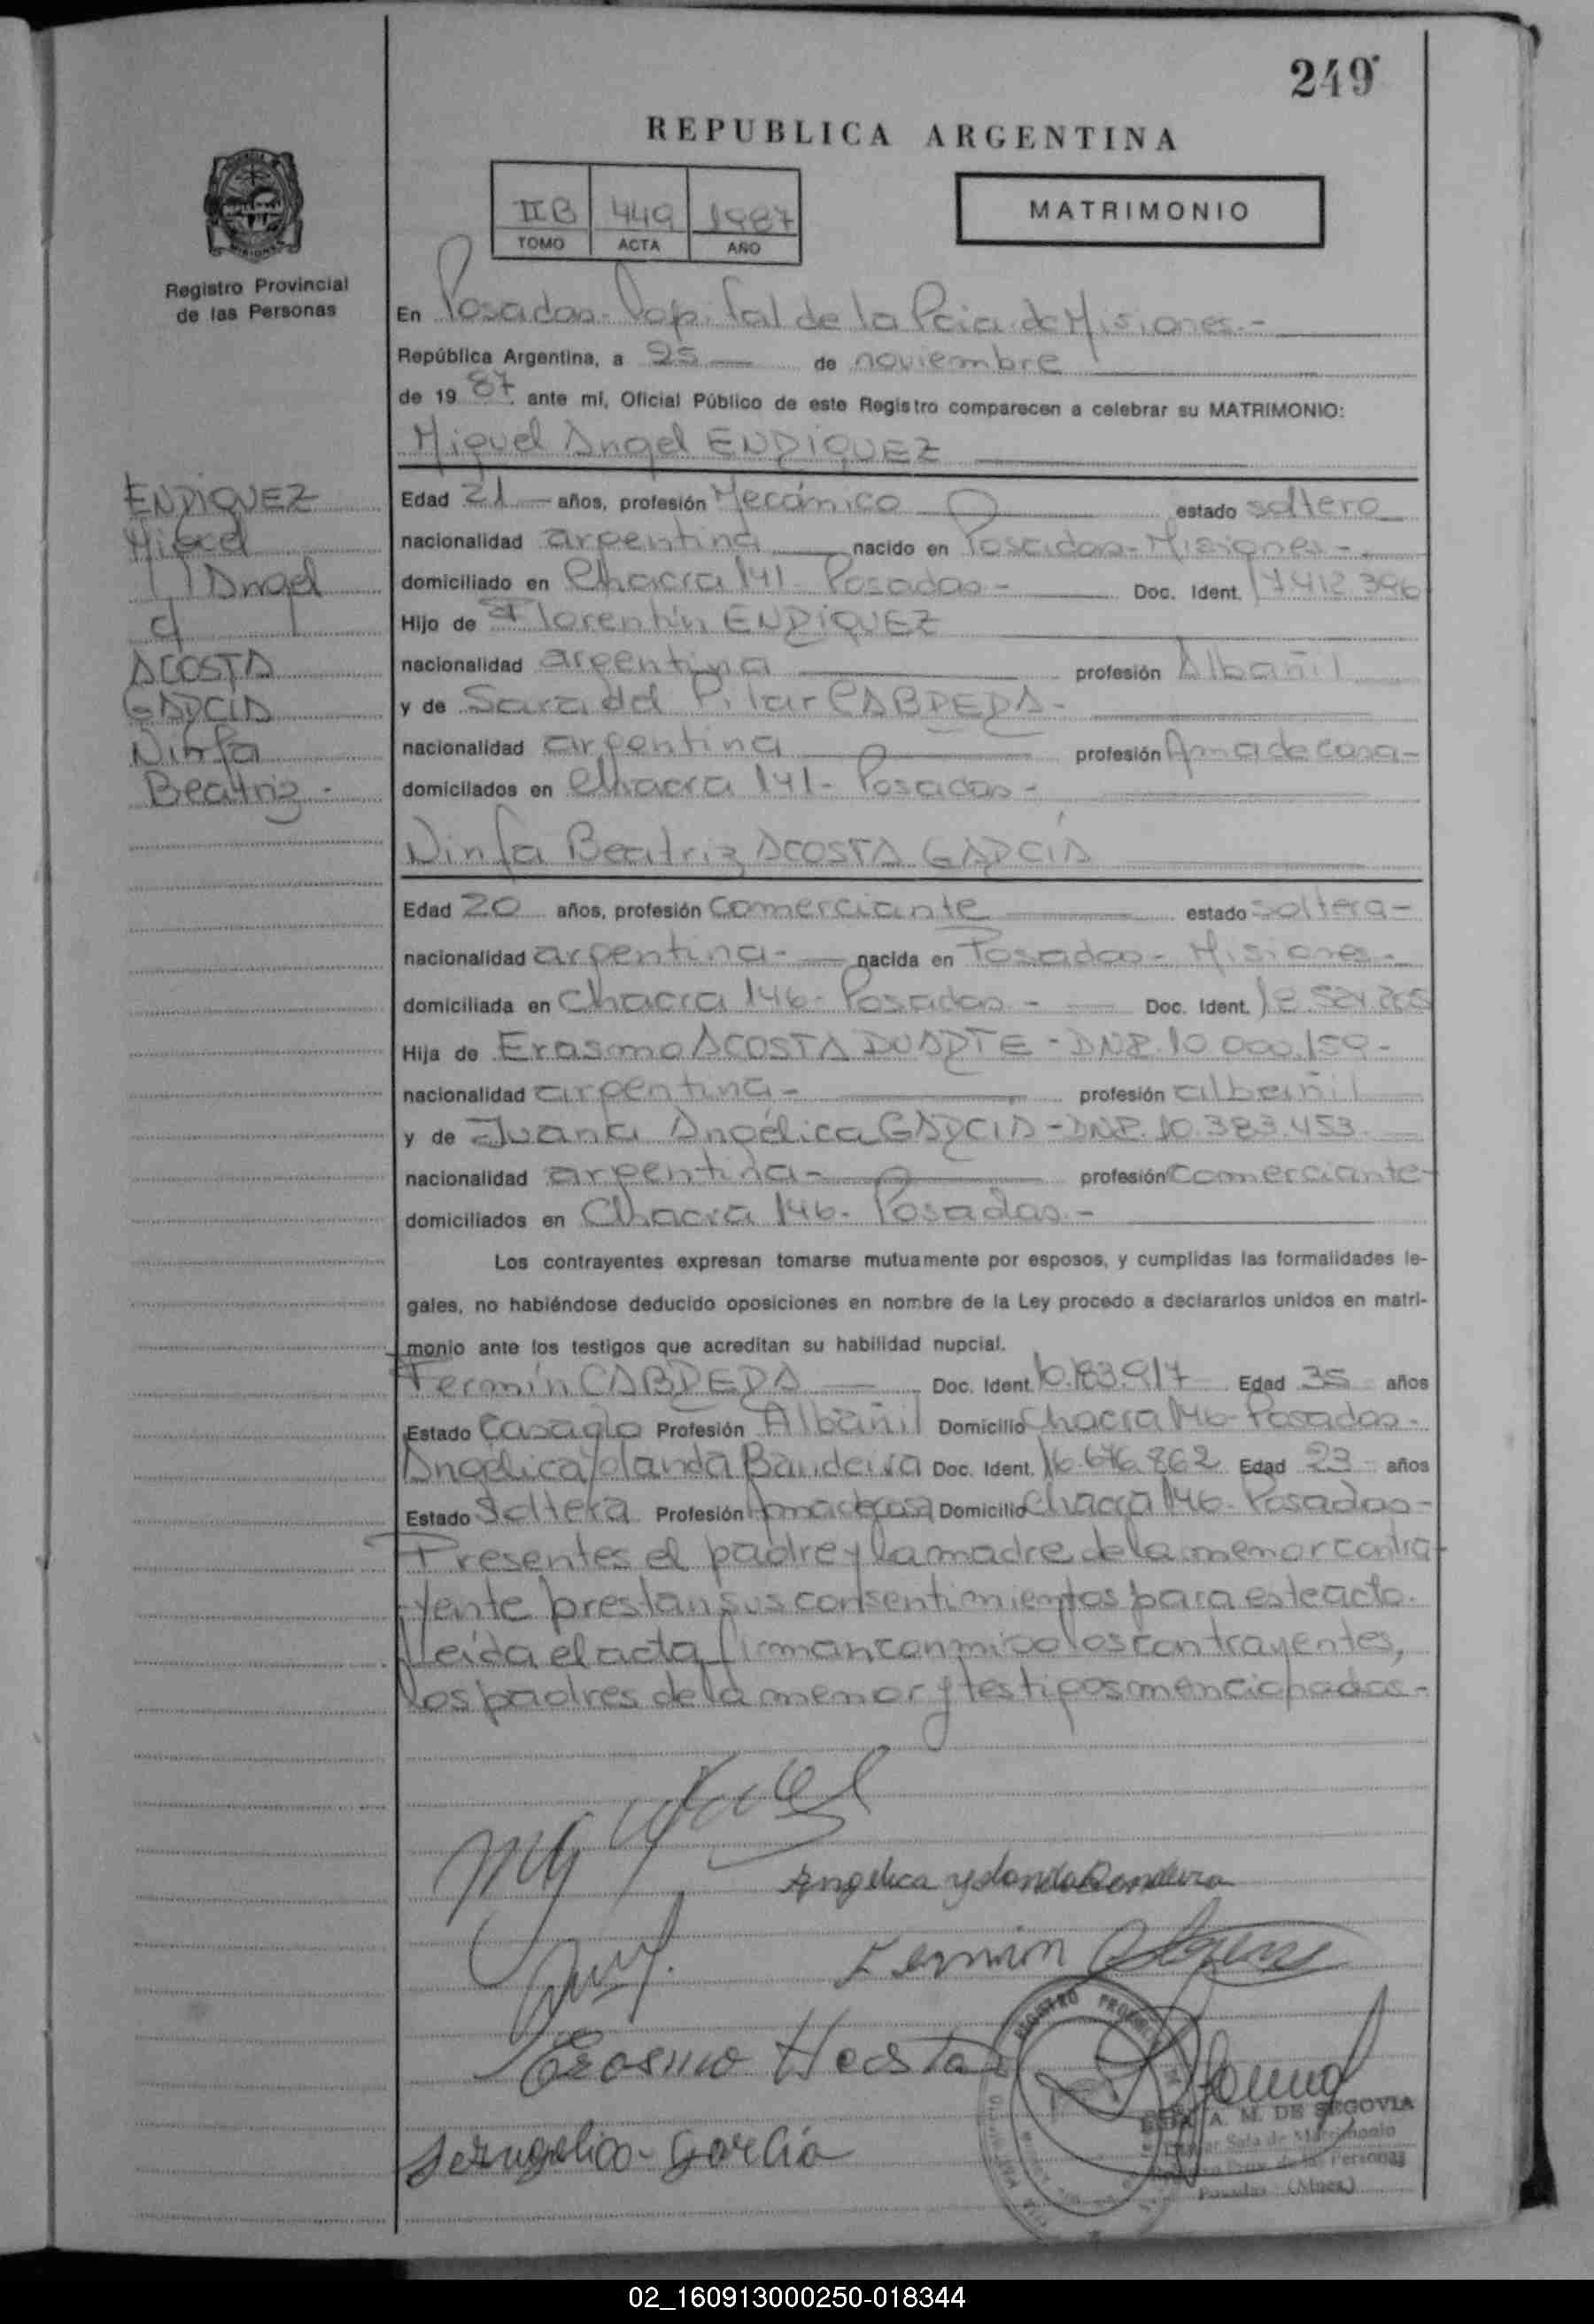 249
REPUBLICA ARGENTINA
IIB 449 1987
TOMO ACTA AÑO
MATRIMONIO
Registro Provincial
de las Personas
En Posadas - Capital de la Pcia. de Misiones.-
República Argentina, a 25 de noviembre
de 1987 ante mí, Oficial Público de este Registro comparecen a celebrar su MATRIMONIO:
Miguel Angel ENRIQUEZ
ENRIQUEZ
Miguel
Angel
c/
ACOSTA
GARCIA
Ninfa
Beatriz.-
Edad 21 años, profesión Mecánico estado soltero
nacionalidad argentina nacido en Posadas - Misiones -
domiciliado en Chacra 141 - Posadas - Doc. Ident. 17.412.396
Hijo de Florentín ENRIQUEZ
nacionalidad argentina profesión Albañil
y de Sara del Pilar CABRERA -
nacionalidad argentina profesión Ama de casa -
domiciliados en Chacra 141 - Posadas -
Ninfa Beatriz ACOSTA GARCÍA
Edad 20 años, profesión comerciante estado soltera -
nacionalidad argentina - nacida en Posadas - Misiones -
domiciliada en Chacra 146 - Posadas - Doc. Ident.
Hija de Erasmo ACOSTA DUARTE - DNI. 10.000.159 -
nacionalidad argentina - profesión albañil
y de Juana Angélica GARCIA - DNI. 10.383.453
nacionalidad argentina - profesión comerciante -
domiciliados en Chacra 146 - Posadas -
Los contrayentes expresan tomarse mutuamente por esposos, y cumplidas las formalidades le-
gales, no habiéndose deducido oposiciones en nombre de la Ley procedo a declararlos unidos en matri-
monio ante los testigos que acreditan su habilidad nupcial.
Fermín CABRERA Doc. Ident. 10.183.917 Edad 35 años
Estado Casado Profesión Albañil Domicilio Chacra 146 - Posadas -
Angélica Yolanda Bandeira Doc. Ident. 16.676.862 Edad 23 años
Estado Soltera Profesión Ama de casa Domicilio Chacra 146 - Posadas -
Presentes el padre y la madre de la menor contra-
yente prestan sus consentimientos para este acto.
Leída el acta firman conmigo los contrayentes,
los padres de la menor y testigos mencionados -
Angelica Yolanda Bandeira
Fermin
Erasmo Acosta
Angelica Garcia
REGISTRO
A. M. DE SEGOVIA
Sala de Matrimonio
de las Personas
Posadas (Mnes.)
02_160913000250-018344